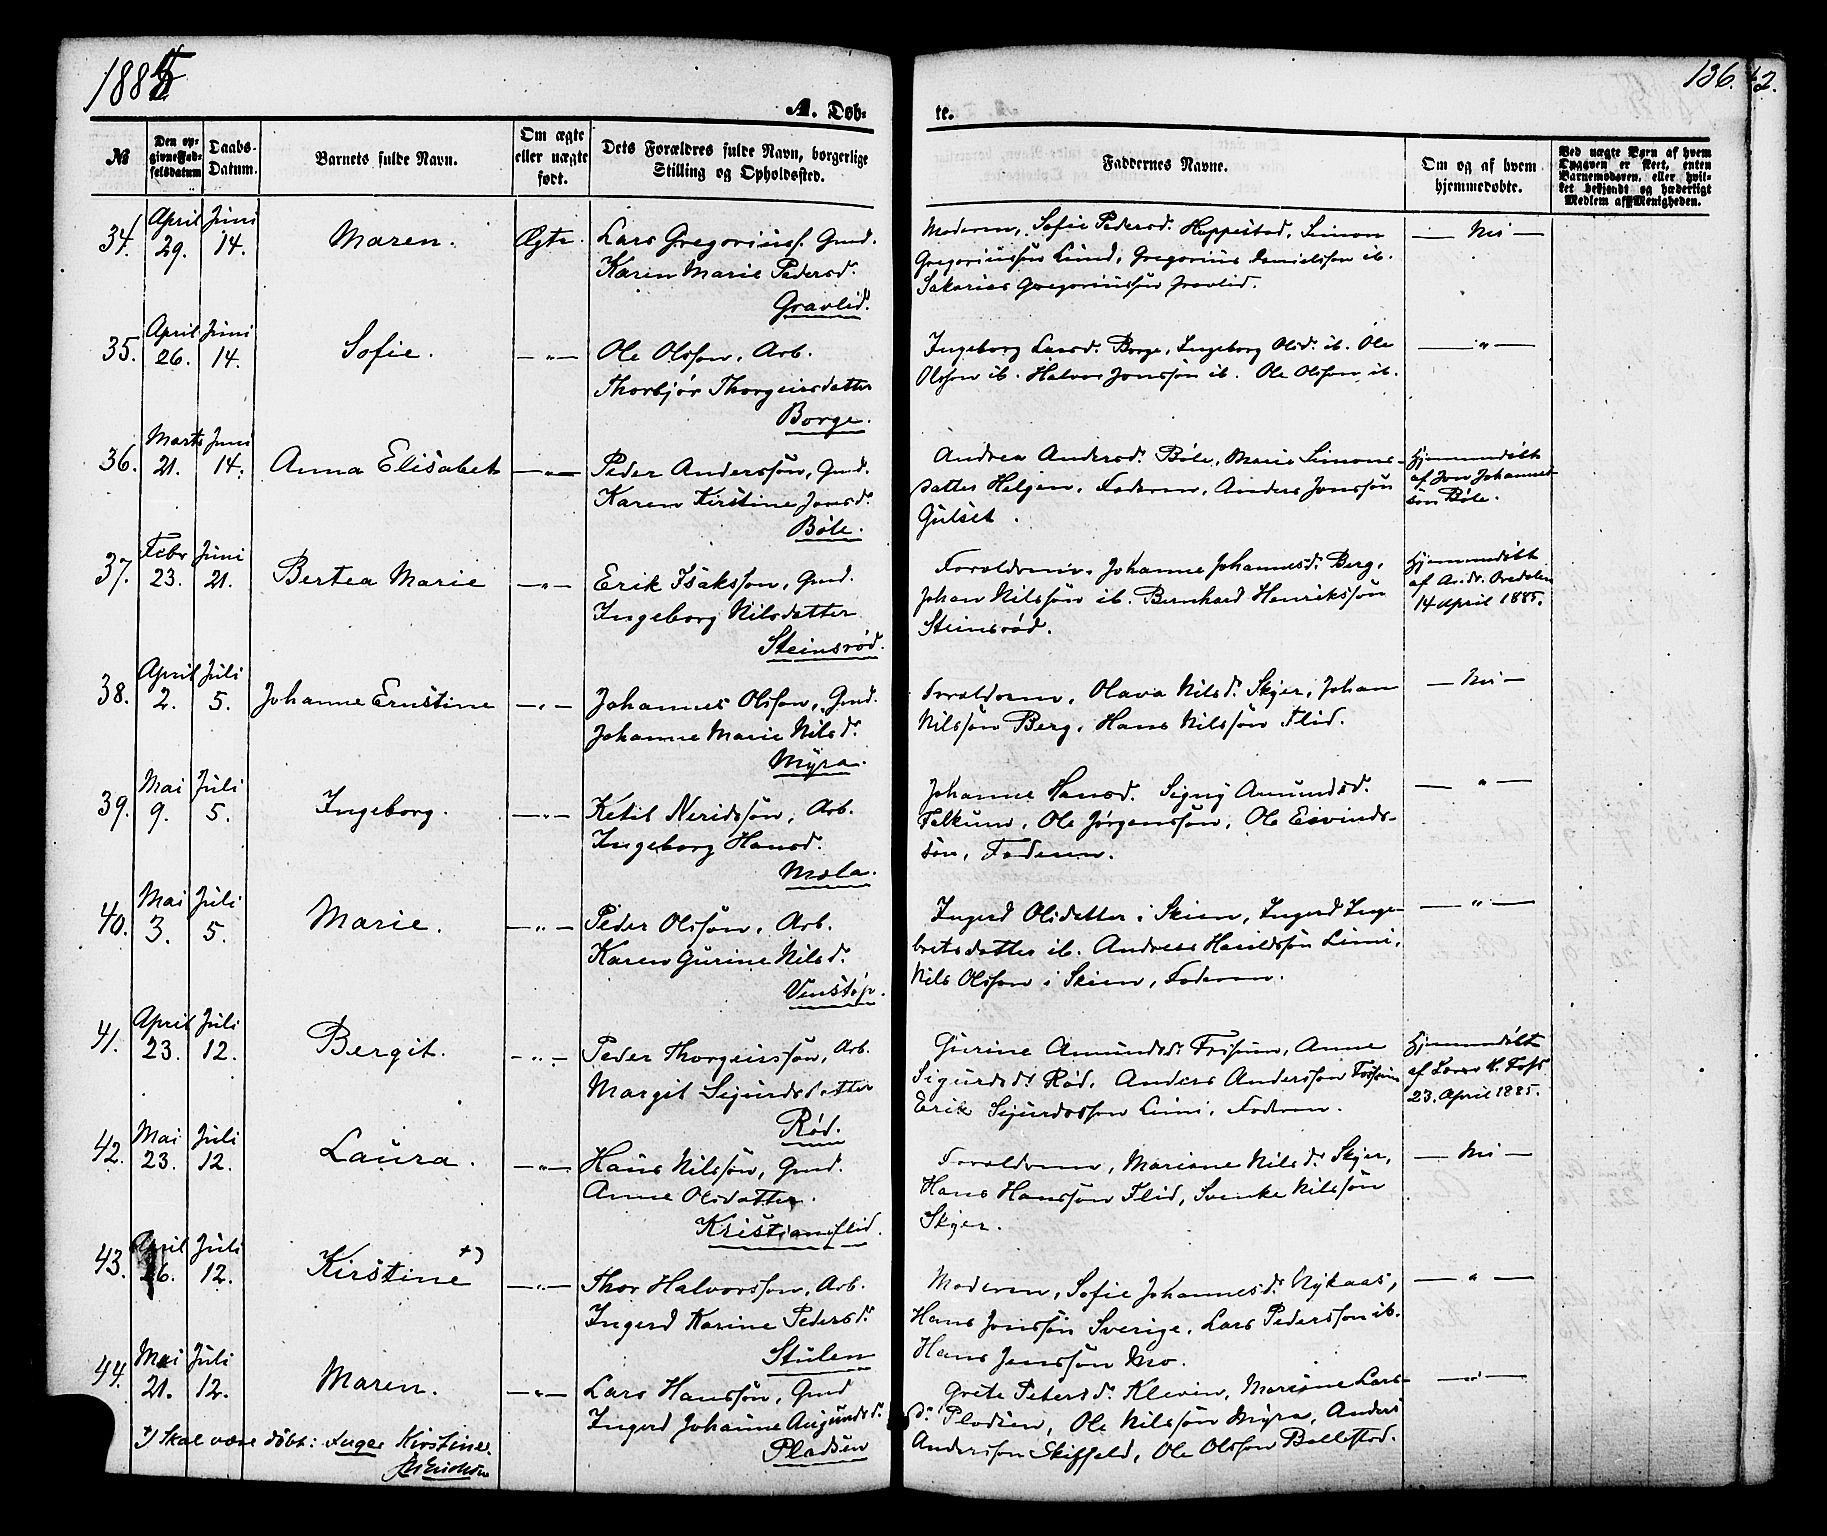 1885
136.
42.
A. Døb-
te.
№
Den op-
givne Fød-
selsdatum
Daabs-
Datum.
Barnets fulde Navn.
Om ægte
eller uægte
født.
Dets Forældres fulde Navn, borgerlige
Stilling og Opholdssted.
Faddernes Navne.
Om og af hvem
hjemmedøbte.
Ved uægte Børn af hvem
Opgaven er skeet, enten
Barnemoderen, eller hvil-
ket bekjendt og hæderligt
Medlem af Menigheden.
34. April 29. Juni 14. Maren. Ægte.
Lars Gregoriuss. Gmd.
Karen Marie Pedersd.
Gravlid.
Moderen, Sofie Pedersd. Hoppestad, Simon
Gregoriussøn Lund, Gregorius Danielssøn ib.
Sakarias Gregoriussøn Gravlid.
— Nei —
35. April 26. Juni 14. Sofie. — " —
Ole Olsson, Arb.
Thorbjør Thorgeirsdatter
Borge.
Ingeborg Larsd. Borge, Ingeborg Olsd. ib. Ole
Olsson ib. Halvor Jonssøn ib. Ole Olsson ib.
— " —
36. Marts 21. Juni 14. Anna Elisabet — " —
Peder Anderssøn, Gmd.
Karen Kirstine Jonsd.
Bøle.
Andrea Andersd. Bøle, Marie Simons-
datter Heljen, Faderen, Anders Jonssøn
Gulset.
Hjemmedøbt
af Jon Johannes-
søn Bøle.
37. Febr 23. Juni 21. Bertea Marie — " —
Erik Isaksson, Gmd.
Ingeborg Nilsdatter
Steinsrød.
Forældrene, Johanne Johannesd. Berg,
Johan Nilssøn ib. Bernhard Henrikssøn
Steinsrød.
Hjemmedøbt
af And. Ovedalen
14 April 1885.
38. April 2. Juli 5. Johanne Ernstine — " —
Johannes Olsson, Gmd.
Johanne Marie Nilsd.
Myra.
Forældrene, Olava Nilsd. Skyer, Johan
Nilssøn Berg, Hans Nilssøn Flid.
— Nei —
39. Mai 9. Juli 5. Ingeborg. — " —
Ketil Neridssøn, Arb.
Ingeborg Hansd.
Mæla.
Johanne Hansd. Signy Amundsd.
Falkum, Ole Jørgenssøn, Ole Eivinds-
søn, Faderen.
— " —
40. Mai 3. Juli 5. Marie. — " —
Peder Olssøn, Arb.
Karen Gurine Nilsd.
Venstøp.
Ingerd Olsdatter i Skien, Ingerd Inge-
bretsdatter ib. Andreas Haraldssøn Limi,
Nils Olsson i Skien, Faderen.
— " —
41. April 23. Juli 12. Bergit. — " —
Peder Thorgeirssøn, Arb.
Margit Sigurdsdatter
Rød.
Gurine Amundsd. Fossum, Anne
Sigurdsd. Rød, Anders Anderssøn Fossum
Erik Sigurdsson Limi, Faderen.
Hjemmedøbt
af H. Foss
23. April 1885.
42. Mai 23. Juli 12. Laura. — " —
Hans Nilssøn, Gmd.
Anne Olsdatter.
Kristiansflid.
Forældrene, Mariane Nilsd. Skyer,
Hans Hanssøn Flid, Svenke Nilssøn
Skyer.
— Nei —
43. April 26. Juli 12. Kirstine +) — " —
Thor Halvorsson, Arb.
Ingerd Karine Pedersd.
Stulen
Moderen, Sofie Johannesd. Nykaas,
Hans Jonssøn Sverige, Lars Pedersson ib.
Hans Jenssøn Mo.
— " —
44. Mai 21. Juli 12. Maren. — " —
Lars Hanssøn, Gmd
Ingerd Johanne Augundsd.
Pladsen
Grete Petersd. Klevin, Mariane Lars-
d. Pladsen, Ole Nilssøn Myra, Anders
Andersson Skiffeld, Ole Olsson Ballestad.
— " —
+) Skal være døbt: Inger Kirstine.